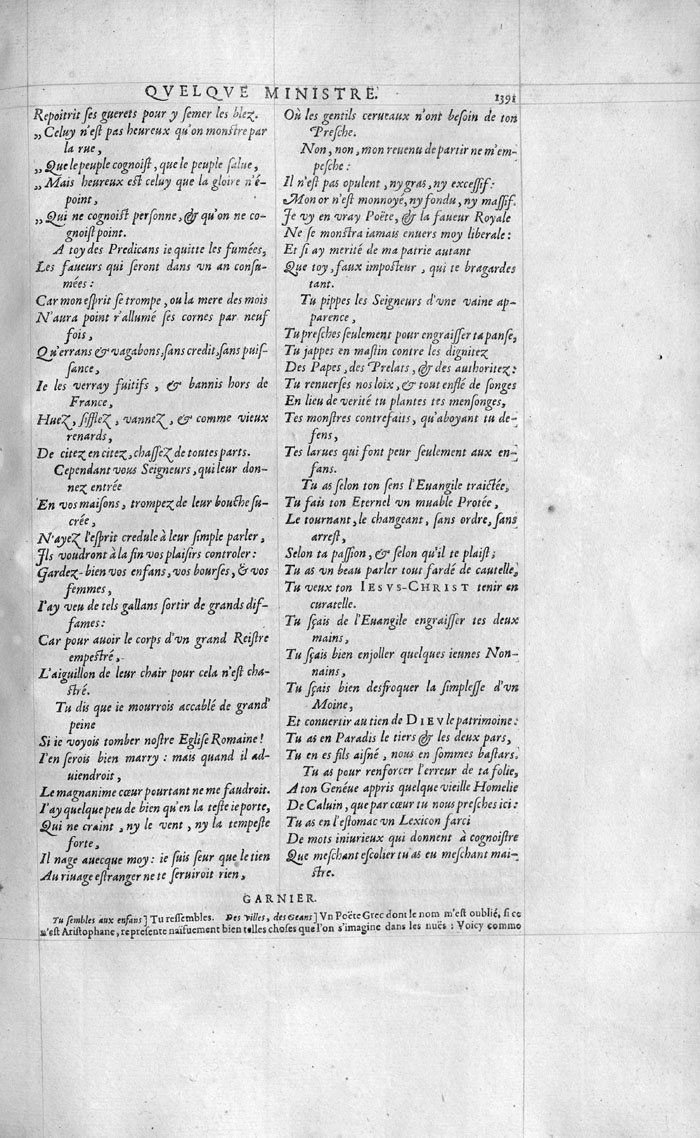 QVELQVE MINISTRE.
1391
Repoitrit ſes guerets pour y ſemer les blez.
„Celuy n'eſt pas heureux qu'on monſtre par
la rue,
„Que le peuple cognoiſt, que le peuple ſalue,
„Mais heureux eſt celuy que la gloire n'é-
point,
„Qui ne cognoiſt perſonne, & qu'on ne co-
gnoiſt point.
A toy des Predicans ie quitte les fumées,
Les faueurs qui ſeront dans vn an conſu-
mées:
Car mon eſprit ſe trompe, ou la mere des mois
N'aura point r'allumé ſes cornes par neuf
fois,
Qu'errans & vagabons, ſans credit, ſans puiſ-
ſance,
Ie les verray fuitifs, & bannis hors de
France,
Huez, ſifflez, vannez, & comme vieux
renards,
De citez en citez, chaſſez de toutes parts.
Cependant vous Seigneurs, qui leur don-
nez entrée
En vos maiſons, trompez de leur bouche ſu-
crée,
N'ayez l'eſprit credule à leur ſimple parler,
Ils voudront à la fin vos plaiſirs controler:
Gardez-bien vos enfans, vos bourſes, & vos
femmes,
I'ay veu de tels gallans ſortir de grands dif-
fames:
Car pour auoir le corps d'vn grand Reiſtre
empeſtré,
L'aiguillon de leur chair pour cela n'eſt cha-
ſtré.
Tu dis que ie mourrois accablé de grand'
peine
Si ie voyois tomber noſtre Egliſe Romaine!
I'en ſerois bien marry: mais quand il ad-
uiendroit,
Le magnanime cœur pourtant ne me faudroit.
I'ay quelque peu de bien qu'en la teſte ie porte,
Qui ne craint, ny le vent, ny la tempeſte
forte,
Il nage auecque moy: ie ſuis ſeur que le tien
Au riuage eſtranger ne te ſeruiroit rien,
Où les gentils cerueaux n'ont beſoin de ton
Preſche.
Non, non, mon reuenu de partir ne m'em-
peſche:
Il n'eſt pas opulent, ny gras, ny exceſſif:
Mon or n'eſt monnoyé, ny fondu, ny maſſif.
Je vy en vray Poëte, & la faueur Royale
Ne ſe monſtra iamais enuers moy liberale:
Et ſi ay merité de ma patrie autant
Que toy, faux impoſteur, qui te bragardes
tant.
Tu pippes les Seigneurs d'vne vaine ap-
parence,
Tu preſches ſeulement pour engraiſſer ta panſe,
Tu jappes en maſtin contre les dignitez
Des Papes, des Prelats, & des authoritez:
Tu renuerſes nos loix, & tout enflé de ſonges
En lieu de verité tu plantes tes menſonges,
Tes monſtres contrefaits, qu'aboyant tu de-
fens,
Tes larues qui font peur ſeulement aux en-
fans.
Tu as ſelon ton ſens l'Euangile traictée,
Tu fais ton Eternel vn muable Protée,
Le tournant, le changeant, ſans ordre, ſans
arreſt,
Selon ta paſſion, & ſelon qu'il te plaiſt;
Tu as vn beau parler tout fardé de cautelle,
Tu veux ton IESVS-CHRIST tenir en
curatelle.
Tu ſçais de l'Euangile engraiſſer tes deux
mains,
Tu ſçais bien enjoller quelques ieunes Non-
nains,
Tu ſçais bien desfroquer la ſimpleſſe d'vn
Moine,
Et conuertir au tien de DIEV le patrimoine:
Tu as en Paradis le tiers & les deux pars,
Tu en es fils aiſné, nous en ſommes baſtars.
Tu as pour renforcer l'erreur de ta folie,
A ton Genéue appris quelque vieille Homelie
De Caluin, que par cœur tu nous preſches ici:
Tu as en l'eſtomac vn Lexicon farci
De mots iniurieux qui donnent à cognoiſtre
Que meſchant eſcolier tu as eu meſchant mai-
ſtre.
GARNIER.
Tu ſembles aux enfans] Tu reſſembles. Des Villes, des Geans] Vn Poëte Grec dont le nom m'eſt oublié, ſi ce
n'eſt Ariſtophane, repreſente naïfuement bien telles choſes que l'on s'imagine dans les nuës: Voicy comme